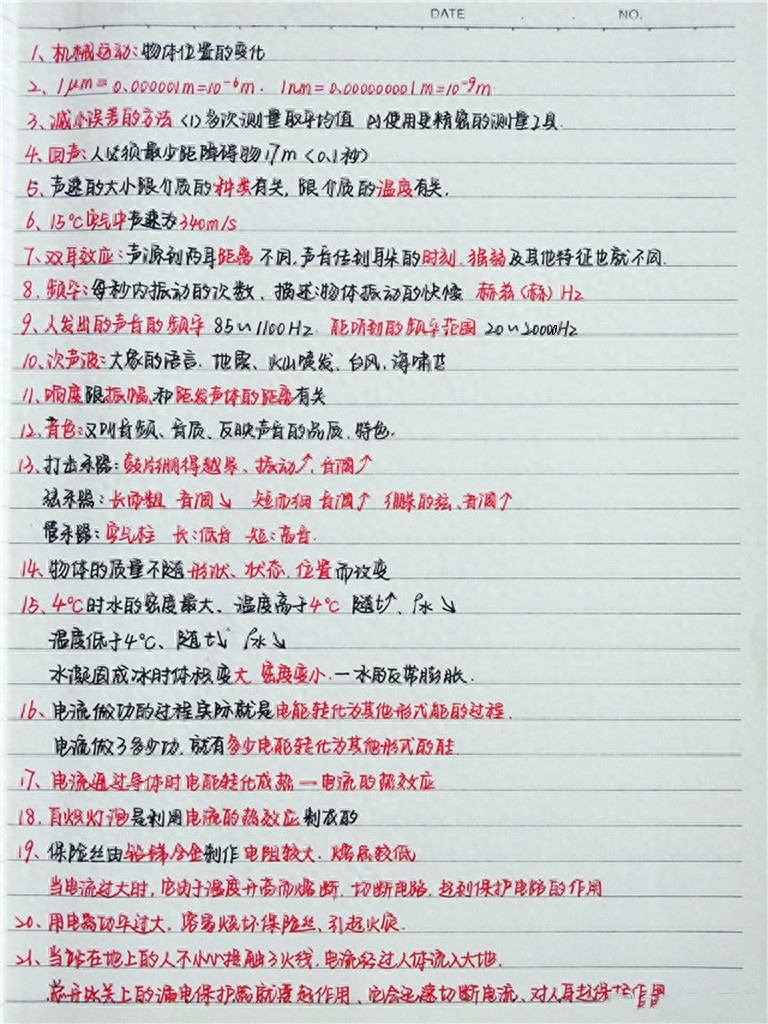 DATE . . NO.
1、机械运动:物体位置的变化
2、1μm=0.000001m=10⁻⁶m. 1nm=0.000000001m=10⁻⁹m
3、减小误差的方法 <1>多次测量取平均值 使用更精密的测量工具.
4、回声:人必须最少距障碍物17m<0.1秒>
5、声速的大小跟介质的种类有关,跟介质的温度有关.
6、15℃空气中声速为340m/s
7、双耳效应:声源到两耳距离不同,声音传到耳朵的时刻、强弱及其他特征也就不同.
8、频率:每秒内振动的次数、描述物体振动的快慢 赫兹(赫)Hz
9、人发出的声音的频率 85~1100Hz 能听到的频率范围 20~20000Hz
10、次声波:大象的语言、地震、火山喷发、台风、海啸
11、响度跟振幅和距发声体的距离有关
12、音色:又叫音频、音质、反映声音的品质、特色.
13、打击乐器:鼓片绷得越紧、振动↑、音调↑
弦乐器:长而粗 音调↘ 短而细 音调↑ 绷紧的弦、音调↑
管乐器:空气柱 长:低音 短:高音.
14、物体的质量不随形状、状态、位置而改变
15、4℃时水的密度最大、温度高于4℃ 随t↑、ρ水↘
温度低于4℃、随t↘ ρ水↘
水凝固成冰时体积变大 密度变小.—水的反常膨胀.
16、电流做功的过程实际就是电能转化为其他形式能的过程.
电流做了多少功.就有多少电能转化为其他形式的能.
17、电流通过导体时电能转化成热—电流的热效应
18、白炽灯泡是利用电流的热效应制成的
19、保险丝由铅锑合金制作 电阻较大.熔点较低
当电流过大时,它由于温度升高而熔断.切断电路.起到保护电路的作用
20、用电器功率过大,容易烧坏保险丝、引起火灾.
21、当站在地上的人不小心接触了火线.电流经过人体流入大地.
总开关上的漏电保护器就要起作用、它会迅速切断电流、对人身起保护作用